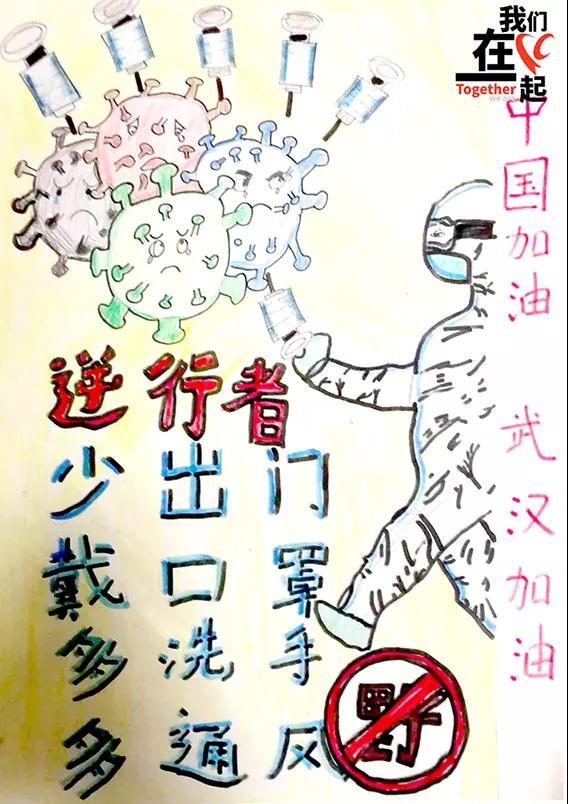 我们
在
一起
Together
We Are
中国加油 武汉加油
逆行者
少出门
戴口罩
多洗手
多通风
野